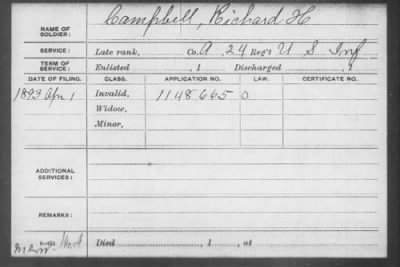 NAME OF SOLDIER: Campbell, Richard H
SERVICE: Late rank, Co. A, 24 Reg't U S Inf
TERM OF SERVICE: Enlisted , 1 Discharged , 1
DATE OF FILING. CLASS. APPLICATION NO. LAW. CERTIFICATE NO.
1893 Apr. 1 Invalid, 1148665 O
Widow,
Minor,
ADDITIONAL SERVICES:
REMARKS:
Died , 1 , at